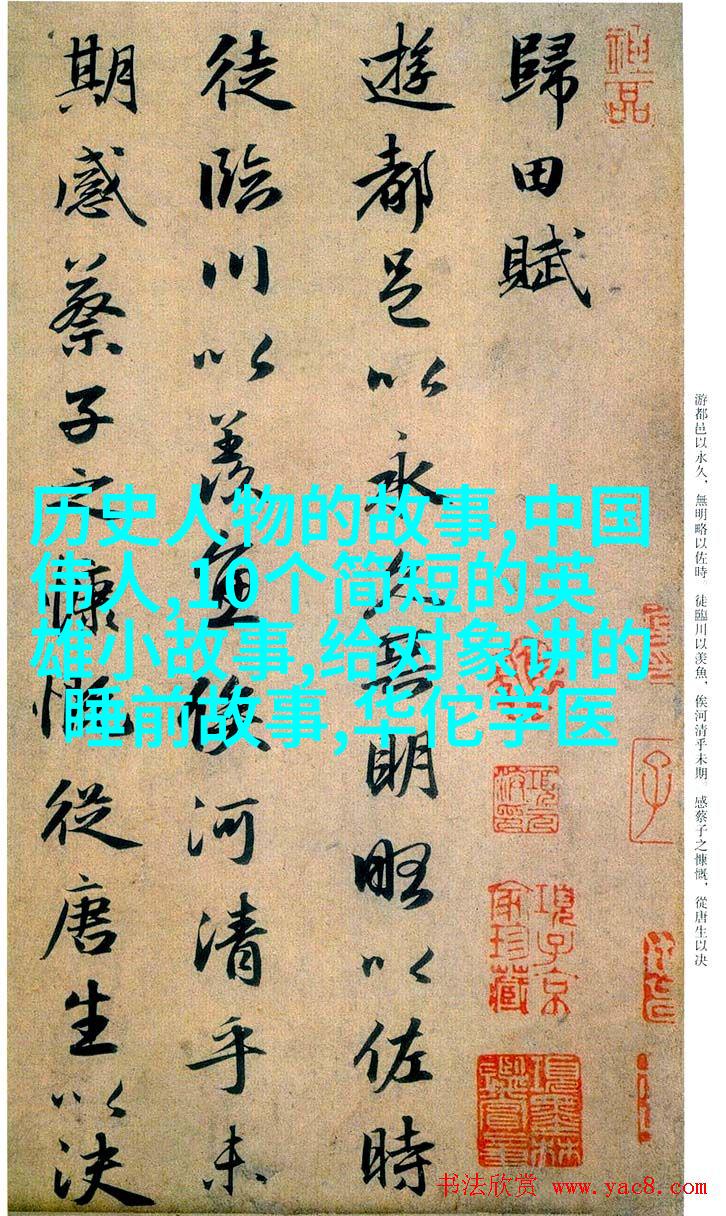 歸田賦
遊都邑以永久無明略以佐時
徒臨川以羨魚俟河清乎未
期感蔡子之慷慨從唐生以決
历史人物的故事,中国
伟人,10个简短的英
雄小故事,给对象讲的
睡前故事,华佗学医
游都邑以永久，無明略以佐時。徒臨川以羨魚，俟河清乎未期。感蔡子之慷慨，從唐生以决
項子京
家珍藏
书法欣赏 www.yac8.com